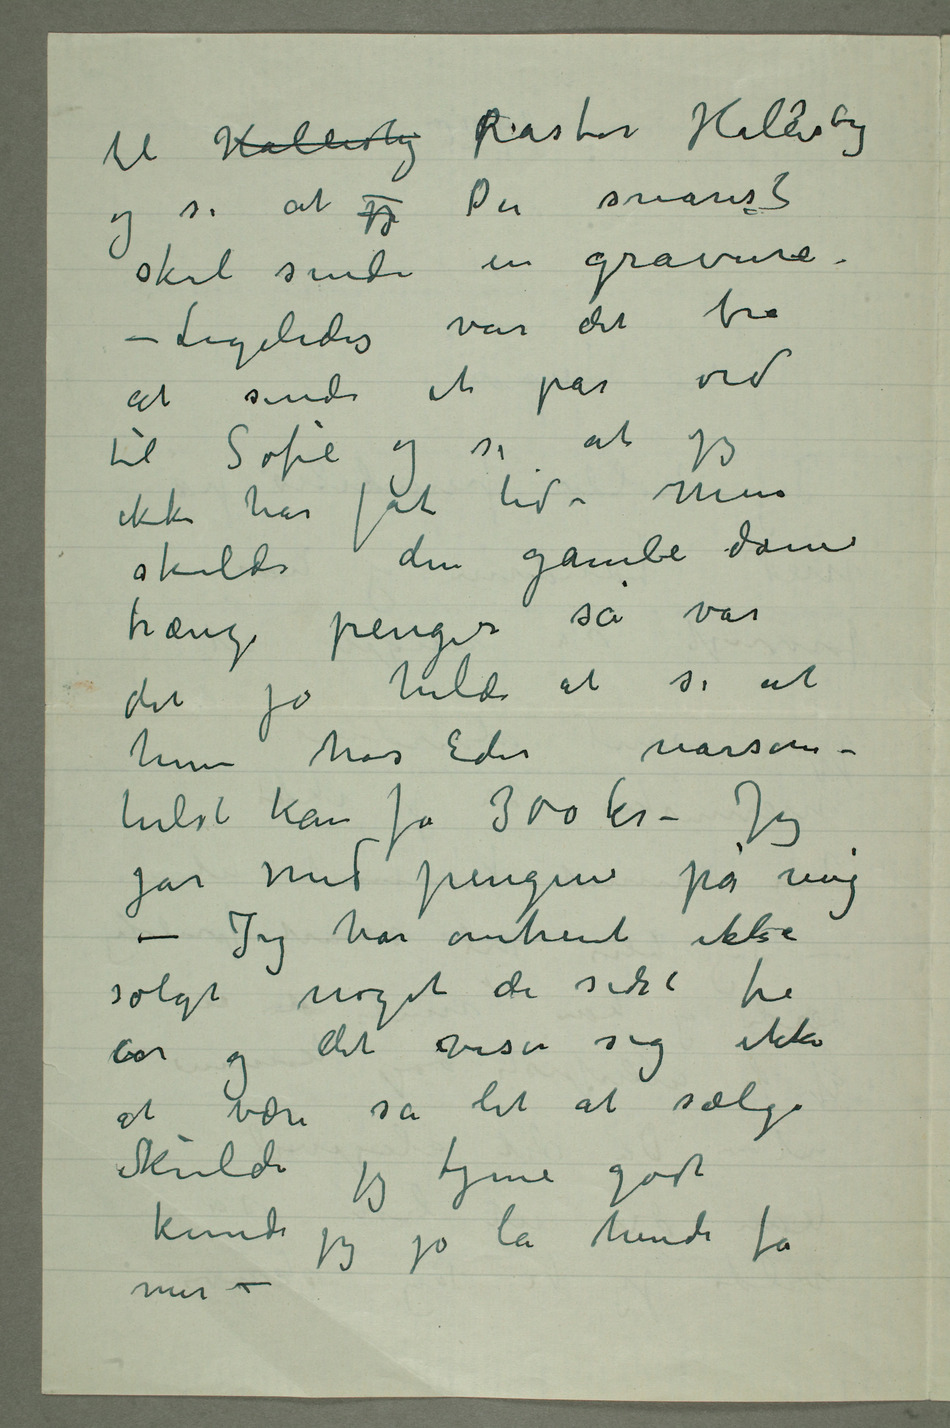 til Hallesby Pastor Hallesby
og si at jeg De snarest
skal sende en gravure.
– Ligeledes var det bra
at sende et par ord
til Sofie og si at jeg
ikke har fåt tid – Men
skulde den gamle dame
trænge penger så var
det jo heldi at si at
hun hos Eder nårsom-
helst kan få 300 kr – Jeg
gar med pengene på mig
– Jeg har omtrent ikke
solgt noget de sidst tre
aar og det viser sig ikke
at være så let at sælge
Skulde jeg tjene godt
kunde jeg jo la hende få
mer –